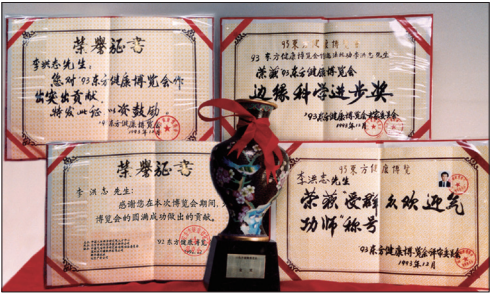 荣誉证书
李洪志先生:
您对'93东方健康博览会作
出突出贡献
特发此证 以资鼓励。
'93东方健康博览会
1993年12月
93东方健康博览会
荣获'93东方健康博览会
边缘科学进步奖
'93东方健康博览会评审委员会
1993年12月
荣誉证书
李洪志先生:
感谢您在本次博览会期间,
博览会的圆满成功做出的贡献。
'92东方健康博览
93东方健康博览
李洪志先生
荣获受群众欢迎气
功师"称号
'93东方健康博览会评审委员会
1993年12月